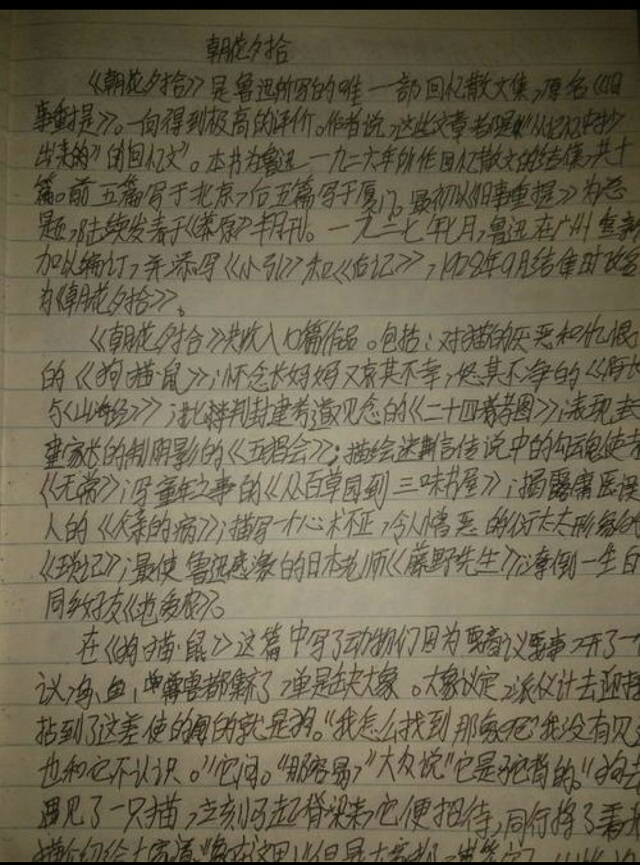 朝花夕拾
《朝花夕拾》是鲁迅所写的唯一一部回忆散文集,原名《旧
事重提》。一向得到极高的评价。作者说,这些文章都是“从记忆中抄
出来的”“回忆文”。本书为鲁迅一九二六年所作回忆散文的结集,共十
篇。前五篇写于北京,后五篇写于厦门。最初以《旧事重提》为总
题,陆续发表于《莽原》半月刊。一九二七年七月,鲁迅在广州重新
加以编订,并添写《小引》和《后记》,1928年9月结集时改名
为《朝花夕拾》。
《朝花夕拾》共收入10篇作品。包括:对猫的厌恶和仇恨
的《狗·猫·鼠》;怀念长妈妈又哀其不幸,怒其不争的《阿长
与《山海经》》;批判封建孝道观念的《二十四孝图》;表现封
建家长的制阴影的《五猖会》;描绘迷信传说中的勾魂使者
《无常》;写童年之事的《从百草园到三味书屋》;揭露庸医误
人的《父亲的病》;描写一个心术不正,令人憎恶的衍太太形象的
《琐记》;最使鲁迅感激的日本老师《藤野先生》;潦倒一生的
同乡好友《范爱农》。
在《狗·猫·鼠》这篇中写了动物们因为要商议要事,开了一个
议,鸟、鱼、兽都集齐了,单是缺大象。大象议定,派伙计去迎接
拈到了这差使的阄的就是狗。“我怎么找到那象呢?我没有见过
也和它不认识。”它问。“那容易,”大众说“它是驼背的。”狗去
遇见了一只猫,立刻弓起脊梁来,它便招待,同行,将了